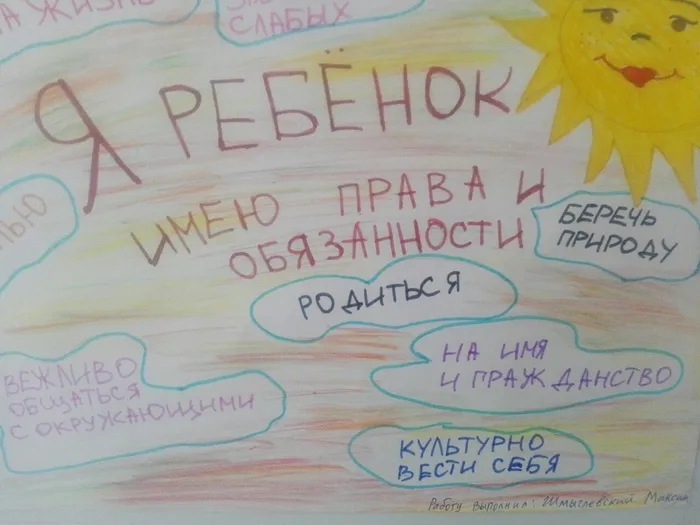 А ЖИЗНЬ
СЛАБЫХ
Я РЕБЁНОК
ИМЕЮ ПРАВА И
ОБЯЗАННОСТИ
БЕРЕЧЬ
ПРИРОДУ
РОДИТЬСЯ
НА ИМЯ
И ПРАЖДАНСТВО
ВЕЖЛИВО
ОБЩАТЬСЯ
С ОКРУЖАЮЩИМИ
КУЛЬТУРНО
ВЕСТИ СЕБЯ
Работу выполнил: Шмыслевский Максим